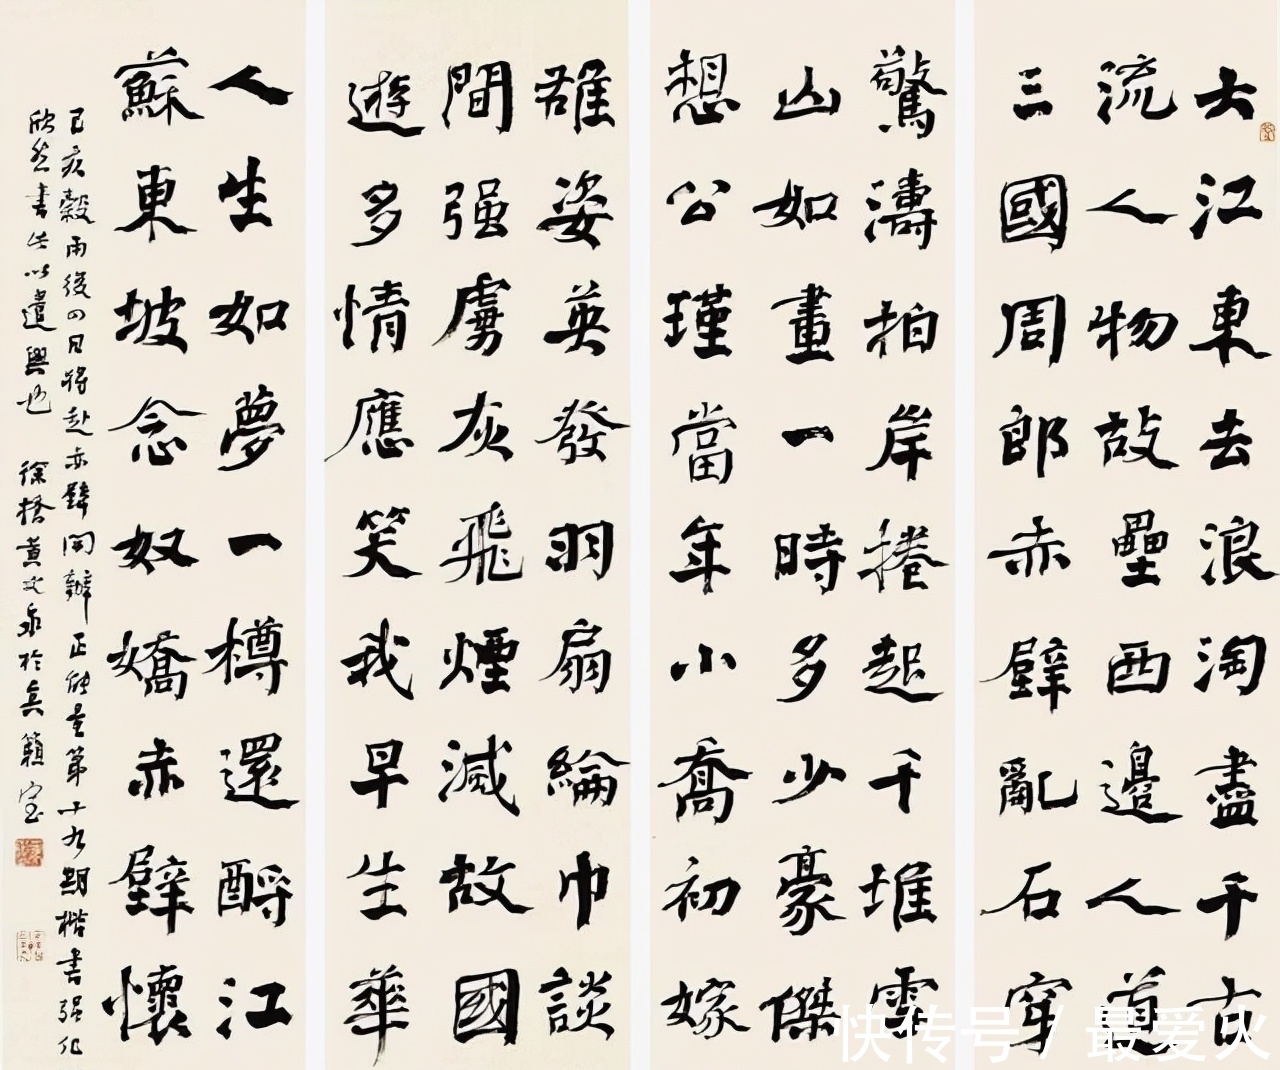 大江東去浪淘盡千古
流人物故壘西邊人道
三國周郎赤壁亂石穿
驚濤拍岸捲起千堆雪
山如畫一時多少豪傑
想公瑾當年小喬初嫁
雄姿英發羽扇綸巾談
間强虜灰飛煙滅故國
遊多情應笑我早生華
人生如夢一樽還酹江
蘇東坡念奴嬌赤壁懷
己亥穀雨後四日將赴赤壁開辦正能量第十九期楷書强化
欣然書此以遣興也 黄文泉於籟室
快传号 / 最爱火